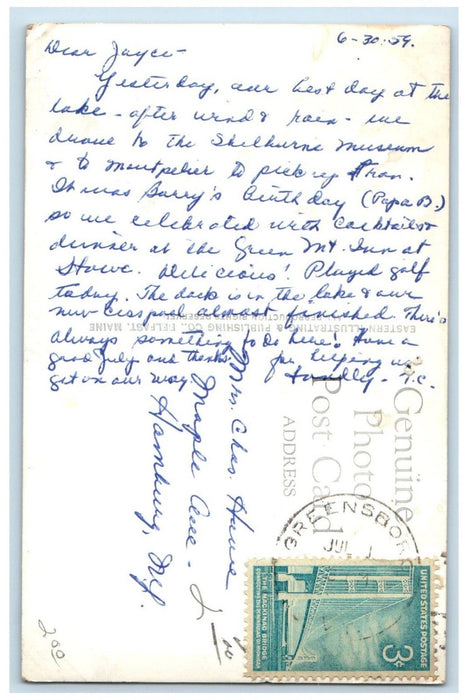 6-30-59.
Dear Joyce-
Yesterday, our best day at the
lake - after wind & rain - we
drove to the Shelburne Museum
& to Montpelier to pick up Fran.
It was Barry's birthday (Papa B.)
so we celebrated with cocktails &
dinner at the Green Mt. Inn at
Stowe. Delicious! Played golf
today. The dock is in the lake & our
new cesspool almost finished. There's
always something to do here! Have a
good July and thanks for helping us
get on our way. Fondly - T.C.
Mrs. Chas. Hause
Maple Ave -
Hamburg, N.Y.
EASTERN ILLUSTRATING & PUBLISHING CO., BELFAST, MAINE
Genuine
Photo
Post Card
ADDRESS
GREENSBORO
JUL 1
UNITED STATES POSTAGE
3¢
THE MACKINAC BRIDGE
CONNECTING THE PENINSULAS OF MICHIGAN
2.00
2 00